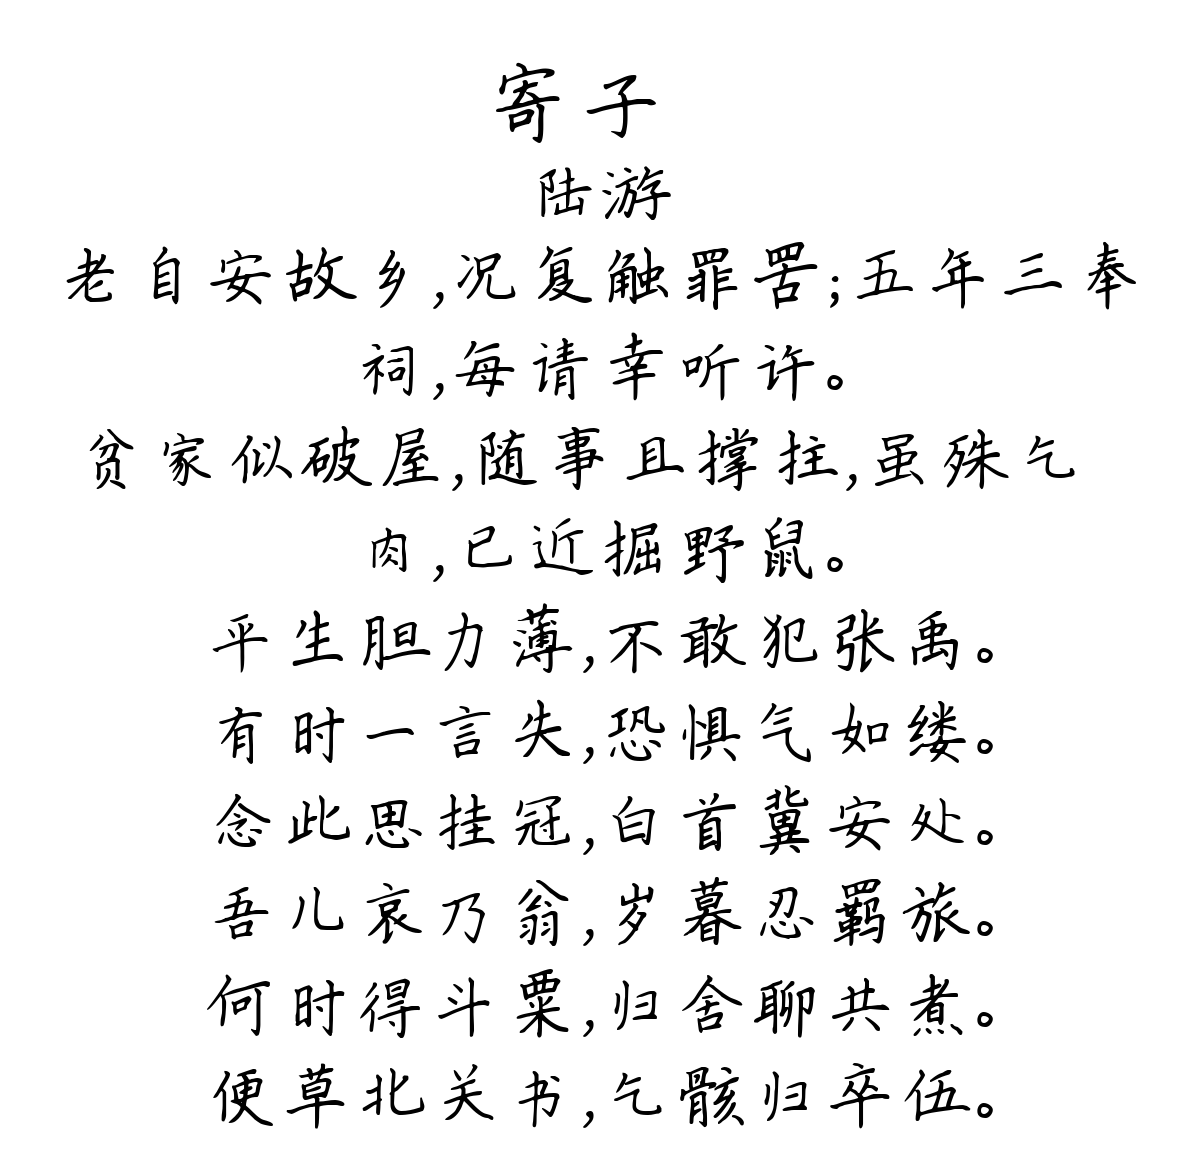 寄子
陆游
老自安故乡,况复触罪罟;五年三奉
祠,每请幸听许。
贫家似破屋,随事且撑拄,虽殊乞
肉,已近掘野鼠。
平生胆力薄,不敢犯张禹。
有时一言失,恐惧气如缕。
念此思挂冠,白首冀安处。
吾儿哀乃翁,岁暮忍羁旅。
何时得斗粟,归舍聊共煮。
便草北关书,乞骸归卒伍。